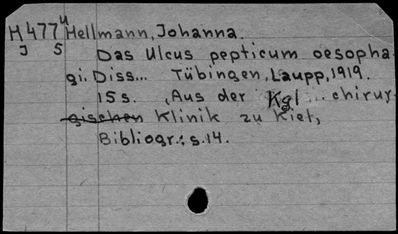 H477u Hellmann, Johanna.
J 5 Das Ulcus pepticum oesopha-
gi. Diss... Tübingen, Laupp, 1919.
15 s. , Aus der Kgl ... chirur-
gischen Klinik zu Kiel,
Bibliogr.: s.14.